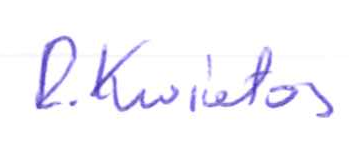 R. Kwiatos